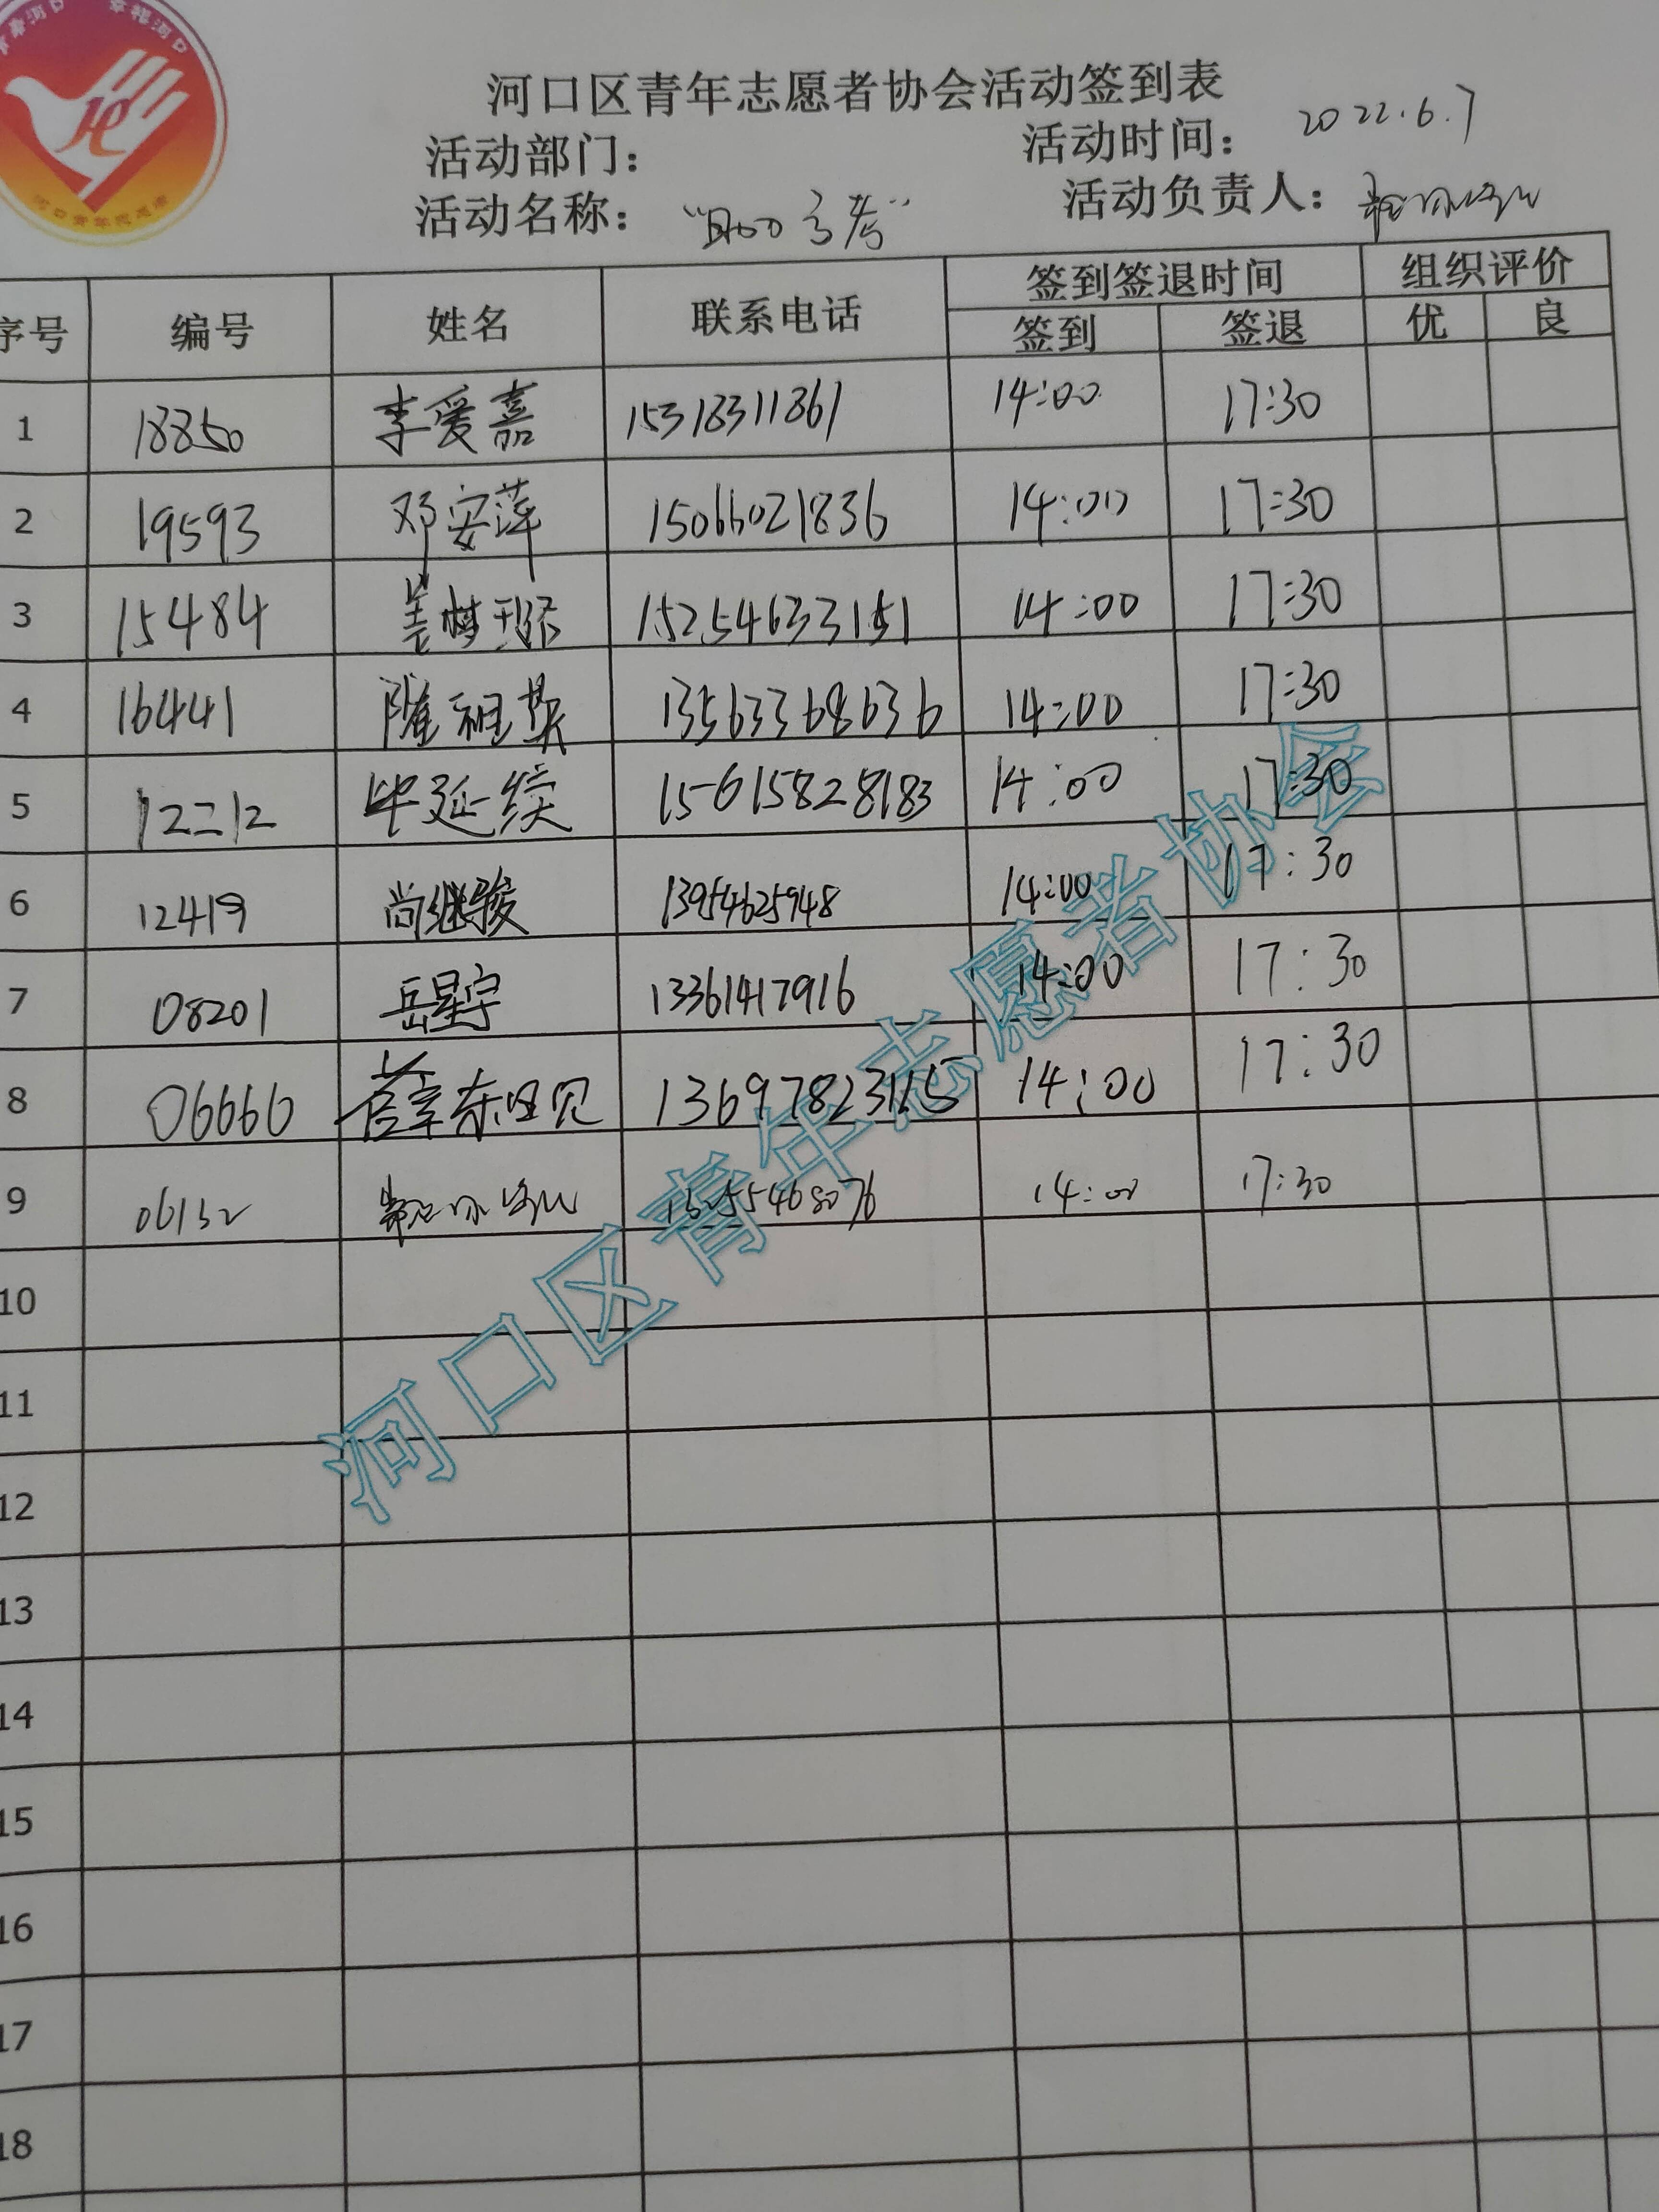 幸福河口
河口区青年志愿者协会活动签到表
活动部门： 活动时间： 2022.6.7
活动名称： "助力高考" 活动负责人：
序号 编号 姓名 联系电话 签到签退时间 组织评价
签到 签退 优 良
1 18850 李爱嘉 15318311861 14:00 17:30
2 19593 邓安萍 15066021836 14:00 17:30
3 15484 15254633151 14:00 17:30
4 16441 隆祖英 13563368636 14:00 17:30
5 12212 毕延续 15615828183 14:00 17:30
6 12419 尚继骏 13954625948 14:00 17:30
7 08201 岳星宇 13361417916 14:00 17:30
8 06666 14:00 17:30
9 06132 14:00 17:30
10
11
12
13
14
15
16
17
18
河口区青年志愿者协会